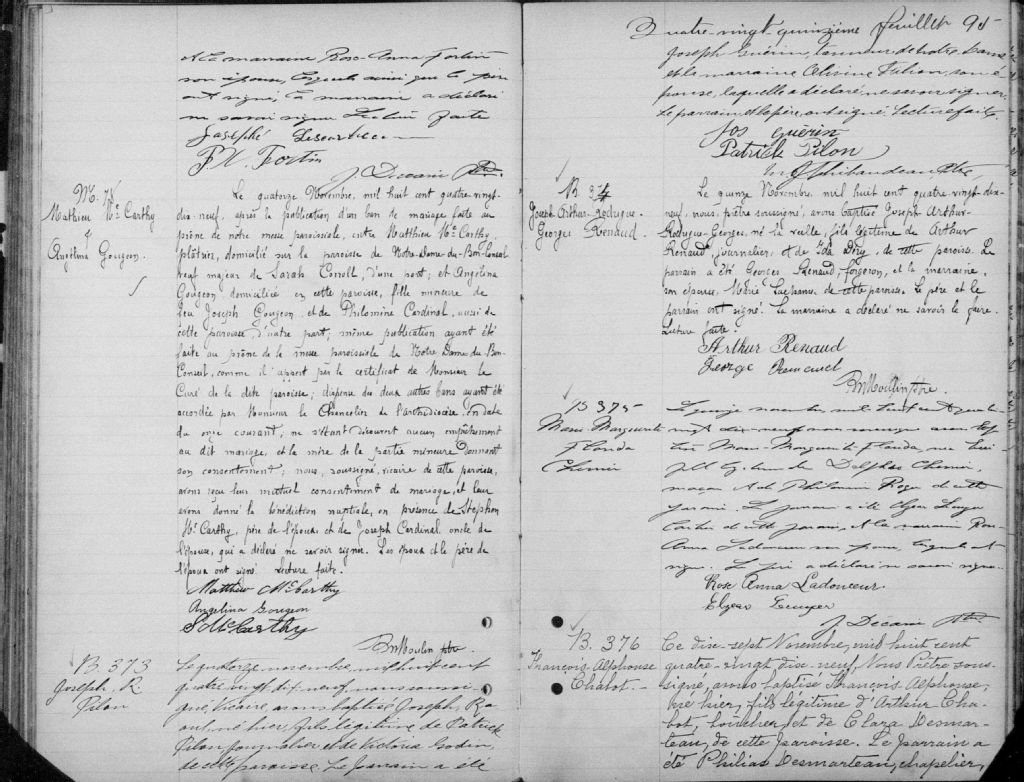 et la marraine Rose-Anna Fortin
son épouse, lesquels ainsi que le père
ont signé, la marraine a déclaré
ne savoir signer Lecture faite
Josephé
J. W. Fortin
J. Decarie Ptre
M. 74
Mathieu Mc Carthy
&
Angelina Gougeon.
Le quatorze Novembre, mil huit cent quatre-vingt-
dix-neuf, après la publication d'un ban de mariage faite au
prône de notre messe paroissiale, entre Matthieu Mc Carthy,
plâtrier, domicilié sur la paroisse de Notre-Dame-du-Bon-Conseil
veuf majeur de Sarah Conroll, d'une part; et Angelina
Gougeon domiciliée en cette paroisse, fille mineure de
feu Joseph Gougeon et de Philomène Cardinal, aussi de
cette paroisse, d'autre part; même publication ayant été
faite au prône de la messe paroissiale de Notre Dame du Bon-
Conseil, comme il appert par le certificat de Monsieur le
Curé de la dite paroisse; dispense des deux autres bans ayant été
accordée par Monsieur le Chancelier de l'archidiocèse en date
du onze courant; ne s'étant découvert aucun empêchement
au dit mariage, et la mère de la partie mineure donnant
son consentement; nous, soussigné, vicaire de cette paroisse,
avons reçu leur mutuel consentement de mariage, et leur
avons donné la bénédiction nuptiale, en présence de Stephen
Mc Carthy, père de l'époux et de Joseph Cardinal oncle de
l'épouse, qui a déclaré ne savoir signer. Les époux et le père de
l'époux ont signé. Lecture faite.
Matthew McCarthy
Angelina Gougeon
S. McCarthy
B. Moulin ptre
B. 373
Joseph, R
Pilon
Le quatorze novembre mil huit cent
quatre vingt dix-neuf, nous soussi-
gné, vicaire, avons baptisé Joseph, Ra
oul, né hier, fils légitime de Patrick
Pilon journalier et de Victoria Godin,
de cette paroisse. Le parrain a été
Quatre-vingt-quinzième feuillet 95
Joseph Guérin, tanneur de Notre Dame
et la marraine Olivine Pilon, son é-
pouse, laquelle a déclaré ne savoir signer
Le parrain et le père, ont signé. Lecture faite.
Jos Guérin
Patrick Pilon
Thibaudeau Ptre
B. 374
Joseph-Arthur-Rodrigue-
Georges Renaud.
Le quinze Novembre, mil huit cent quatre-vingt-dix-
neuf, nous, prêtre soussigné, avons baptisé Joseph Arthur-
Rodrigue-Georges, né la veille, fils légitime de Arthur
Renaud, journalier, et de Ida Déry, de cette paroisse. Le
parrain a été Georges Renaud, forgeron, et la marraine,
son épouse, Marie de cette paroisse. Le père et le
parrain ont signé. La marraine a déclaré ne savoir le faire.
Lecture faite.
Arthur Renaud
George Renaud
B. Moulin ptre
B 375
Marie Marguerite
Florida
Le quinze novembre mil huit cent quatre-
vingt dix-neuf nous soussigné avons bap-
tisé Marie-Marguerite Florida, née hier
fille légitime de Delphis
maçon et de Philomène Roger de cette
paroisse. Le parrain a été
de cette paroisse, et la marraine Rose-
Anna Ladouceur son épouse, lesquels ont
signé. Le père a déclaré ne savoir signer
Rose Anna Ladouceur
J. Decarie Ptre
B. 376
François, Alphonse
Chabot.
Ce dix-sept Novembre, mil huit cent
quatre-vingt dix-neuf, Nous Prêtre sous-
signé, avons baptisé François Alphonse,
né hier, fils légitime d'Arthur Cha-
bot, boucher, et de Clara Desmar-
teau, de cette paroisse. Le parrain a
été Philias Desmarteau, chapelier,